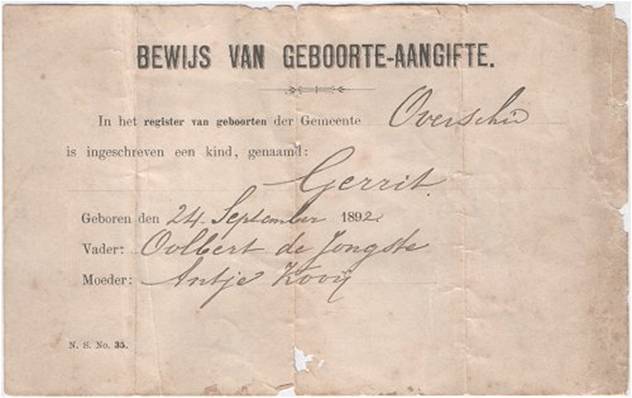 BEWIJS VAN GEBOORTE-AANGIFTE.
In het register van geboorten der Gemeente Overschie
is ingeschreven een kind, genaamd:
Gerrit.
Geboren den 24 September 1892.
Vader: Oolbert de Jongste
Moeder: Antje Kooij
N. S. No. 35.